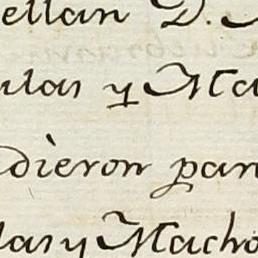 ellan D.
ulas y Ma
dieron par
las y Macho